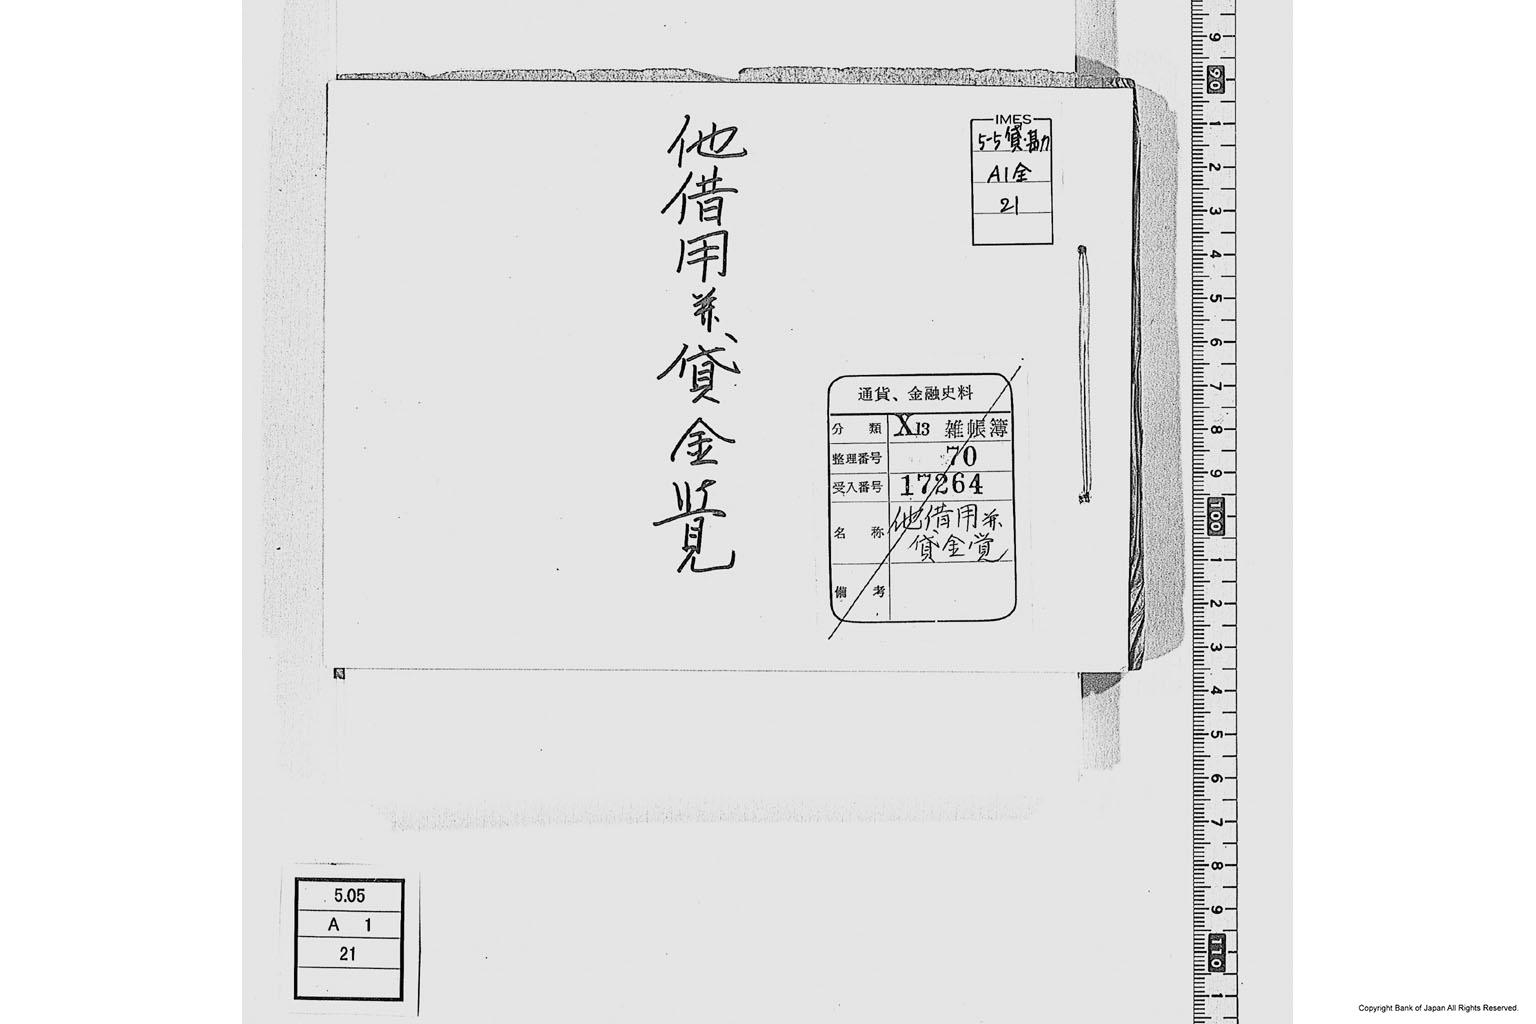 他借用并貸金覚
IMES
5-5貸・勘
A1金
21
通貨、金融史料
分類 X13 雑帳簿
整理番号 70
受入番号 17264
名称 他借用并
貸金覚
備考
5.05
A 1
21
9
90
1
2
3
4
5
6
7
8
9
100
1
2
3
4
5
6
7
8
9
110
1
Copyright Bank of Japan All Rights Reserved.